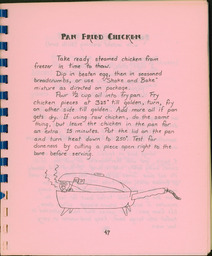 PAN FRIED CHICKEN
Take ready steamed chicken from
freezer in time to thaw.
Dip in beaten egg, then in seasoned
breadcrumbs, or use "Shake and Bake"
mixture as directed on package.
Pour ½ cup oil into fry pan. Fry
chicken pieces at 325° till golden, turn, fry
on other side till golden. Add more oil if pan
gets dry. If using raw chicken, do the same
thing, but leave the chicken in the pan for
an extra 25 minutes. Put the lid on the pan
and turn heat down to 250°. Test for
doneness by cutting a piece open right to the
bone before serving.
47